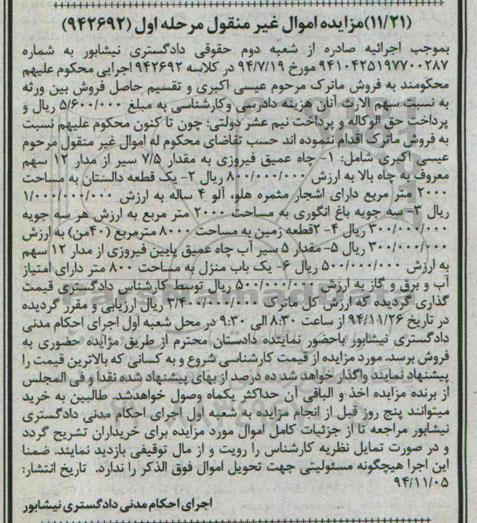 (۱۱/۲۱)مزایده اموال غیر منقول مرحله اول (۹۴۲۶۹۲)
بموجب اجرائیه صادره از شعبه دوم حقوقی دادگستری نیشابور به شماره
۹۴۱۰۴۲۵۱۹۷۷۰۰۲۸۷ مورخ ۹۴/۷/۱۹ در کلاسه ۹۴۲۶۹۲ اجرایی محکوم علیهم
محکومند به فروش ماترک مرحوم عیسی اکبری و تقسیم حاصل فروش بین ورثه
به نسبت سهم الارث آنان هزینه دادرسی وکارشناسی به مبلغ ۵/۶۰۰/۰۰۰ ریال و
پرداخت حق الوکاله و پرداخت نیم عشر دولتی؛ چون تا کنون محکوم علیهم نسبت
به فروش ماترک اقدام ننموده اند حسب تقاضای محکوم له اموال غیر منقول مرحوم
عیسی اکبری شامل: ۱- چاه عمیق فیروزی به مقدار ۷/۵ سیر از مدار ۱۲ سهم
معروف به چاه بالا به ارزش ۸۰۰/۰۰۰/۰۰۰ ریال ۲- یک قطعه دالستان به مساحت
۲۰۰۰ متر مربع دارای اشجار مثمره هلو، آلو ۴ ساله به ارزش ۱/۰۰۰/۰۰۰/۰۰۰
ریال ۳- سه جویه باغ انگوری به مساحت ۲۰۰۰ متر مربع به ارزش هر سه جویه
۳۰۰/۰۰۰/۰۰۰ ریال ۴- ۲قطعه زمین به مساحت ۸۰۰۰ مترمربع (۴۰من) به ارزش
۳۰۰/۰۰۰/۰۰۰ ریال ۵- مقدار ۵ سیر آب چاه عمیق پایین فیروزی از مدار ۱۲ سهم
به ارزش ۵۰۰/۰۰۰/۰۰۰ ریال ۶- یک باب منزل به مساحت ۸۰۰ متر دارای امتیاز
آب و برق و گاز به ارزش ۵۰۰/۰۰۰/۰۰۰ ریال توسط کارشناس دادگستری قیمت
گذاری گردیده که ارزش کل ماترک ۳/۴۰۰/۰۰۰/۰۰۰ ریال ارزیابی و مقرر گردیده
در تاریخ ۹۴/۱۱/۲۶ از ساعت ۸:۳۰ الی ۹:۳۰ در محل شعبه اول اجرای احکام مدنی
دادگستری نیشابور باحضور نماینده دادستان محترم از طریق مزایده حضوری به
فروش برسد. مورد مزایده از قیمت کارشناسی شروع و به کسانی که بالاترین قیمت را
پیشنهاد نمایند واگذار خواهد شد ده درصد از بهای پیشنهاد شده نقدا و فی المجلس
از برنده مزایده اخذ و الباقی آن حداکثر یکماه وصول خواهدشد. طالبین به خرید
میتوانند پنج روز قبل از انجام مزایده به شعبه اول اجرای احکام مدنی دادگستری
نیشابور مراجعه تا از جزئیات کامل اموال مورد مزایده برای خریداران تشریح گردد
و در صورت تمایل نظریه کارشناس را رویت و از مال توقیفی بازدید نمایند. ضمنا
این اجرا هیچگونه مسئولیتی جهت تحویل اموال فوق الذکر را ندارد. تاریخ انتشار:
۹۴/۱۱/۰۵
اجرای احکام مدنی دادگستری نیشابور